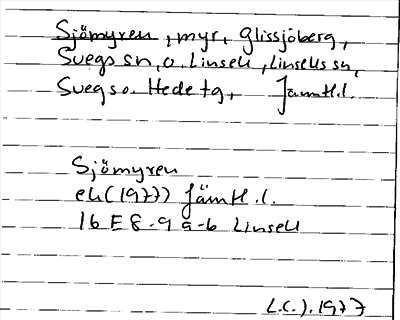 Sjömyren, myr, Glissjöberg,
Svegs sn, o. Linsell, Linsells sn,
Svegs o. Hede tg, Jämtl.l.
Sjömyren
ek (1977) Jämtl.l.
16 E 8-9 a-b Linsell
L.C.). 1977